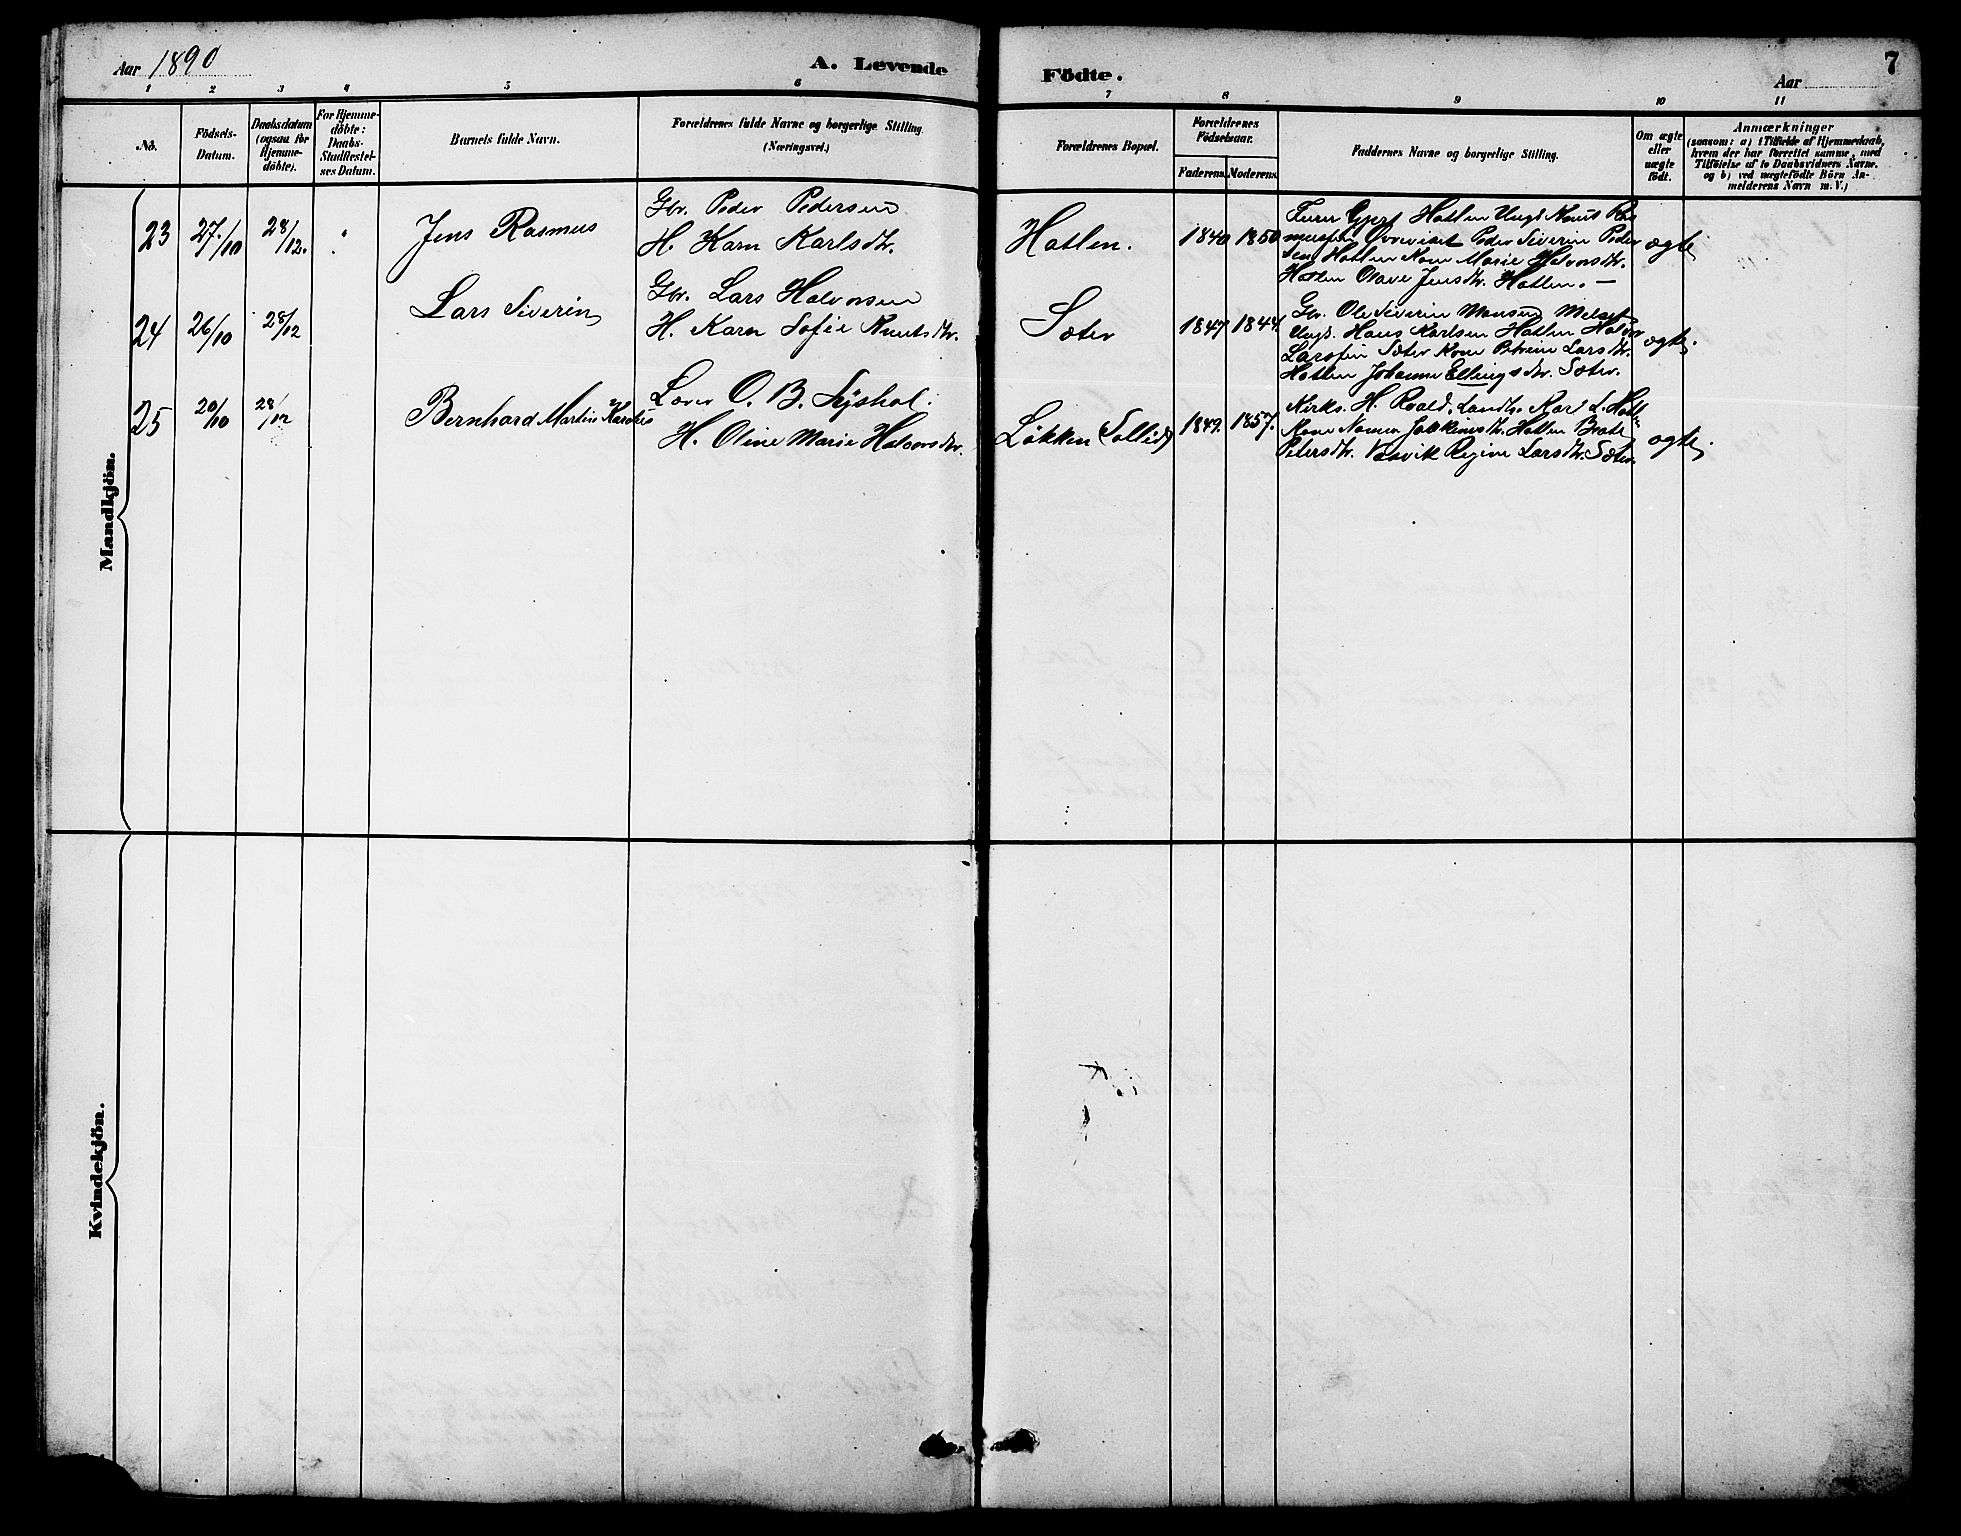 Aar 1890
A. Levende
Födte.
Aar
7
1 2 3 4 5 6 7 8 9 10 11
No.
Födsels-
Datum.
Daabsdatum
(ogsaa for
Hjemme-
döbte).
For Hjemme-
döbte:
Daabs-
Stadfæstel-
ses Datum.
Barnets fulde Navn.
Forældrenes fulde Navne og borgerlige Stilling.
(Næringsvei.)
Forældrenes Bopæl.
Forældrenes
Födselsaar.
Faderens. Moderens.
Faddernes Navne og borgerlige Stilling.
Om ægte
eller
uægte
födt.
Anmærkninger
(saasom: a) i Tilfælde af Hjemmedaab,
hvem der har forrettet samme, med
Tilföielse af to Daabsvidners Navne.
og b) ved uægtefödte Börn An-
melderens Navn m.V.)
Mandkjön.
23
27/10
28/12.
Jens Rasmus
Gbr. Peder Pedersen
H. Karn Karlsdtr.
Hatlen.
1840 1850
Gjert Hatlen Ungk Knut
Peder Severin Peder
sen Hatlen Kone Marie Halvorsdtr.
Hatlen Olave Jensdtr. Hatlen. —
ægte
24
26/10
28/12
Lars Siverin
Gbr. Lars Halvorsen
H. Karn Sofie Knutsdtr.
Sæter
1847 1844
Gbr. Ole Siverin Monsen Melset
Ungk. Hans Karlsen Hatlen Halvor
Larssen Sæter Kone Larsdtr.
Hatlen Johanne Ellingsdtr. Sæter.
ægte.
25
20/10
28/12
Bernhard Martin
Lærer O. B.
H. Oline Marie Halvorsdtr.
Løkken (Sollid)
1849. 1857.
Kirks. H. Roald, Landh. Karl L. Hatlen
Kone Joakimsdtr. Hatlen
Petersdtr. Vasvik Regine Larsdtr. Sæter
ægte.
Kvindekjön.